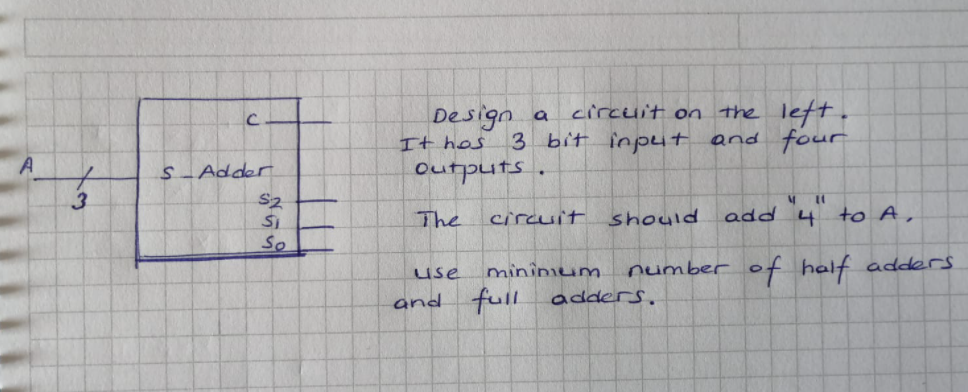 C
A
S_Adder
3
S2
S1
S0
Design a circuit on the left.
It has 3 bit input and four
outputs.
The circuit should add "4" to A.
use minimum number of half adders
and full adders.